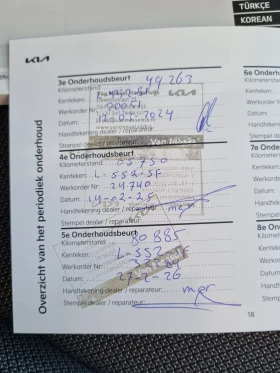 TÜRKÇE
KOREAN
KIA
Overzicht van het periodiek onderhoud
3e Onderhoudsbeurt
Kilometerstand: 49263
Kenteken:
Werkorder Nr:
Datum: 2024
Handtekening dealer / reparateur:
Stempel dealer / reparateur:
4e Onderhoudsbeurt
Kilometerstand: 65750
Kenteken: L-552-SF
Werkorder Nr: 24740
Datum: 14-02-25
Handtekening dealer / reparateur:
Stempel dealer / reparateur:
5e Onderhoudsbeurt
Kilometerstand: 80885
Kenteken: L-552-SF
Werkorder Nr:
Datum: 27-2-26
Handtekening dealer / reparateur:
Stempel dealer / reparateur:
6e Onderh
Kilometerstand
Kenteken:
Werkorder
Datum:
Handtekeni
Stempel de
7e Onde
Kilometers
Kenteken:
Werkorde
Datum:
Handteke
Stempel
8e On
Kilomet
Kentek
Werko
Datum
Handt
Stem
18